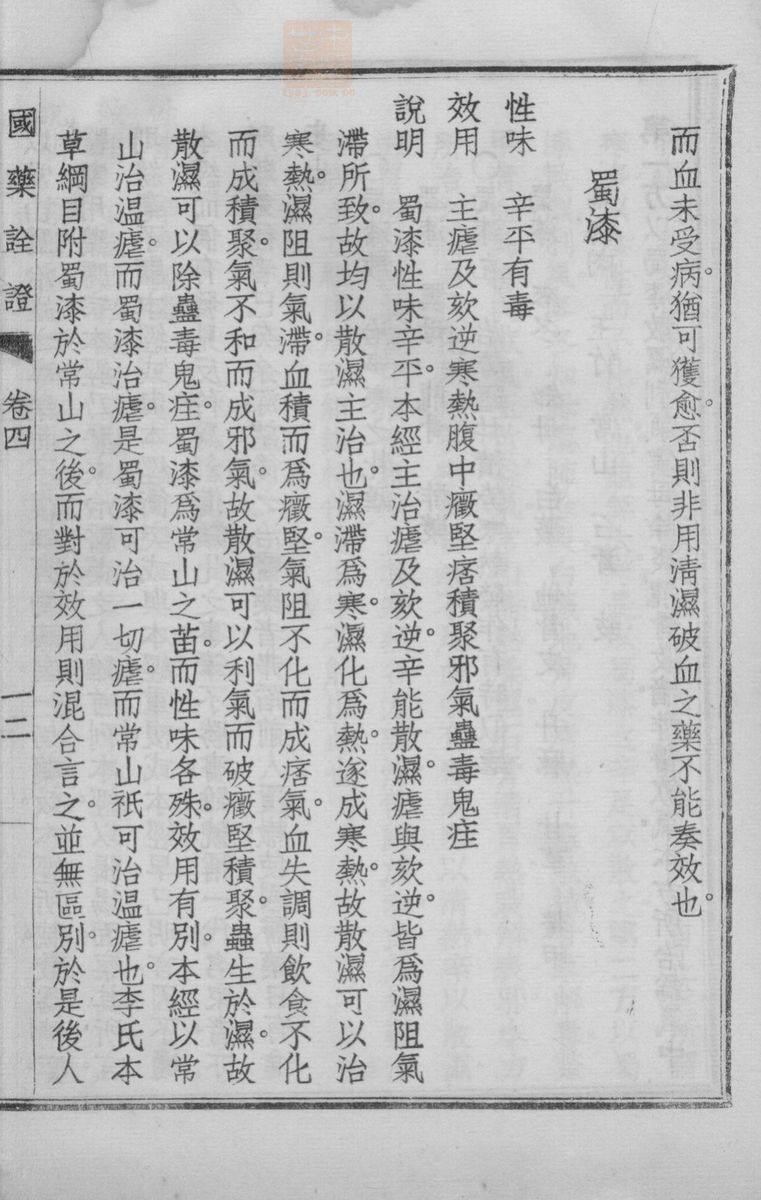 而血未受病。猶可獲愈。否則非用淸濕破血之藥不能奏效也。
蜀漆
性味　辛平有毒
效用　主瘧及欬逆寒熱腹中癥堅痞積聚邪氣蠱毒鬼疰
說明　蜀漆性味辛平。本經主治瘧及欬逆。辛能散濕。瘧與欬逆。皆爲濕阻氣
滯所致。故均以散濕主治也。濕滯爲寒。濕化爲熱。遂成寒熱。故散濕可以治
寒熱。濕阻則氣滯。血積而爲癥堅。氣阻不化而成痞。氣血失調則飮食不化
而成積聚。氣不和而成邪氣。故散濕可以利氣而破癥堅積聚。蟲生於濕。故
散濕可以除蠱毒鬼疰。蜀漆爲常山之苗。而性味各殊。效用有別。本經以常
山治温瘧。而蜀漆治瘧。是蜀漆可治一切瘧。而常山祇可治温瘧也。李氏本
草綱目附蜀漆於常山之後。而對於效用則混合言之。並無區別。於是後人
國藥詮證　卷四　一二